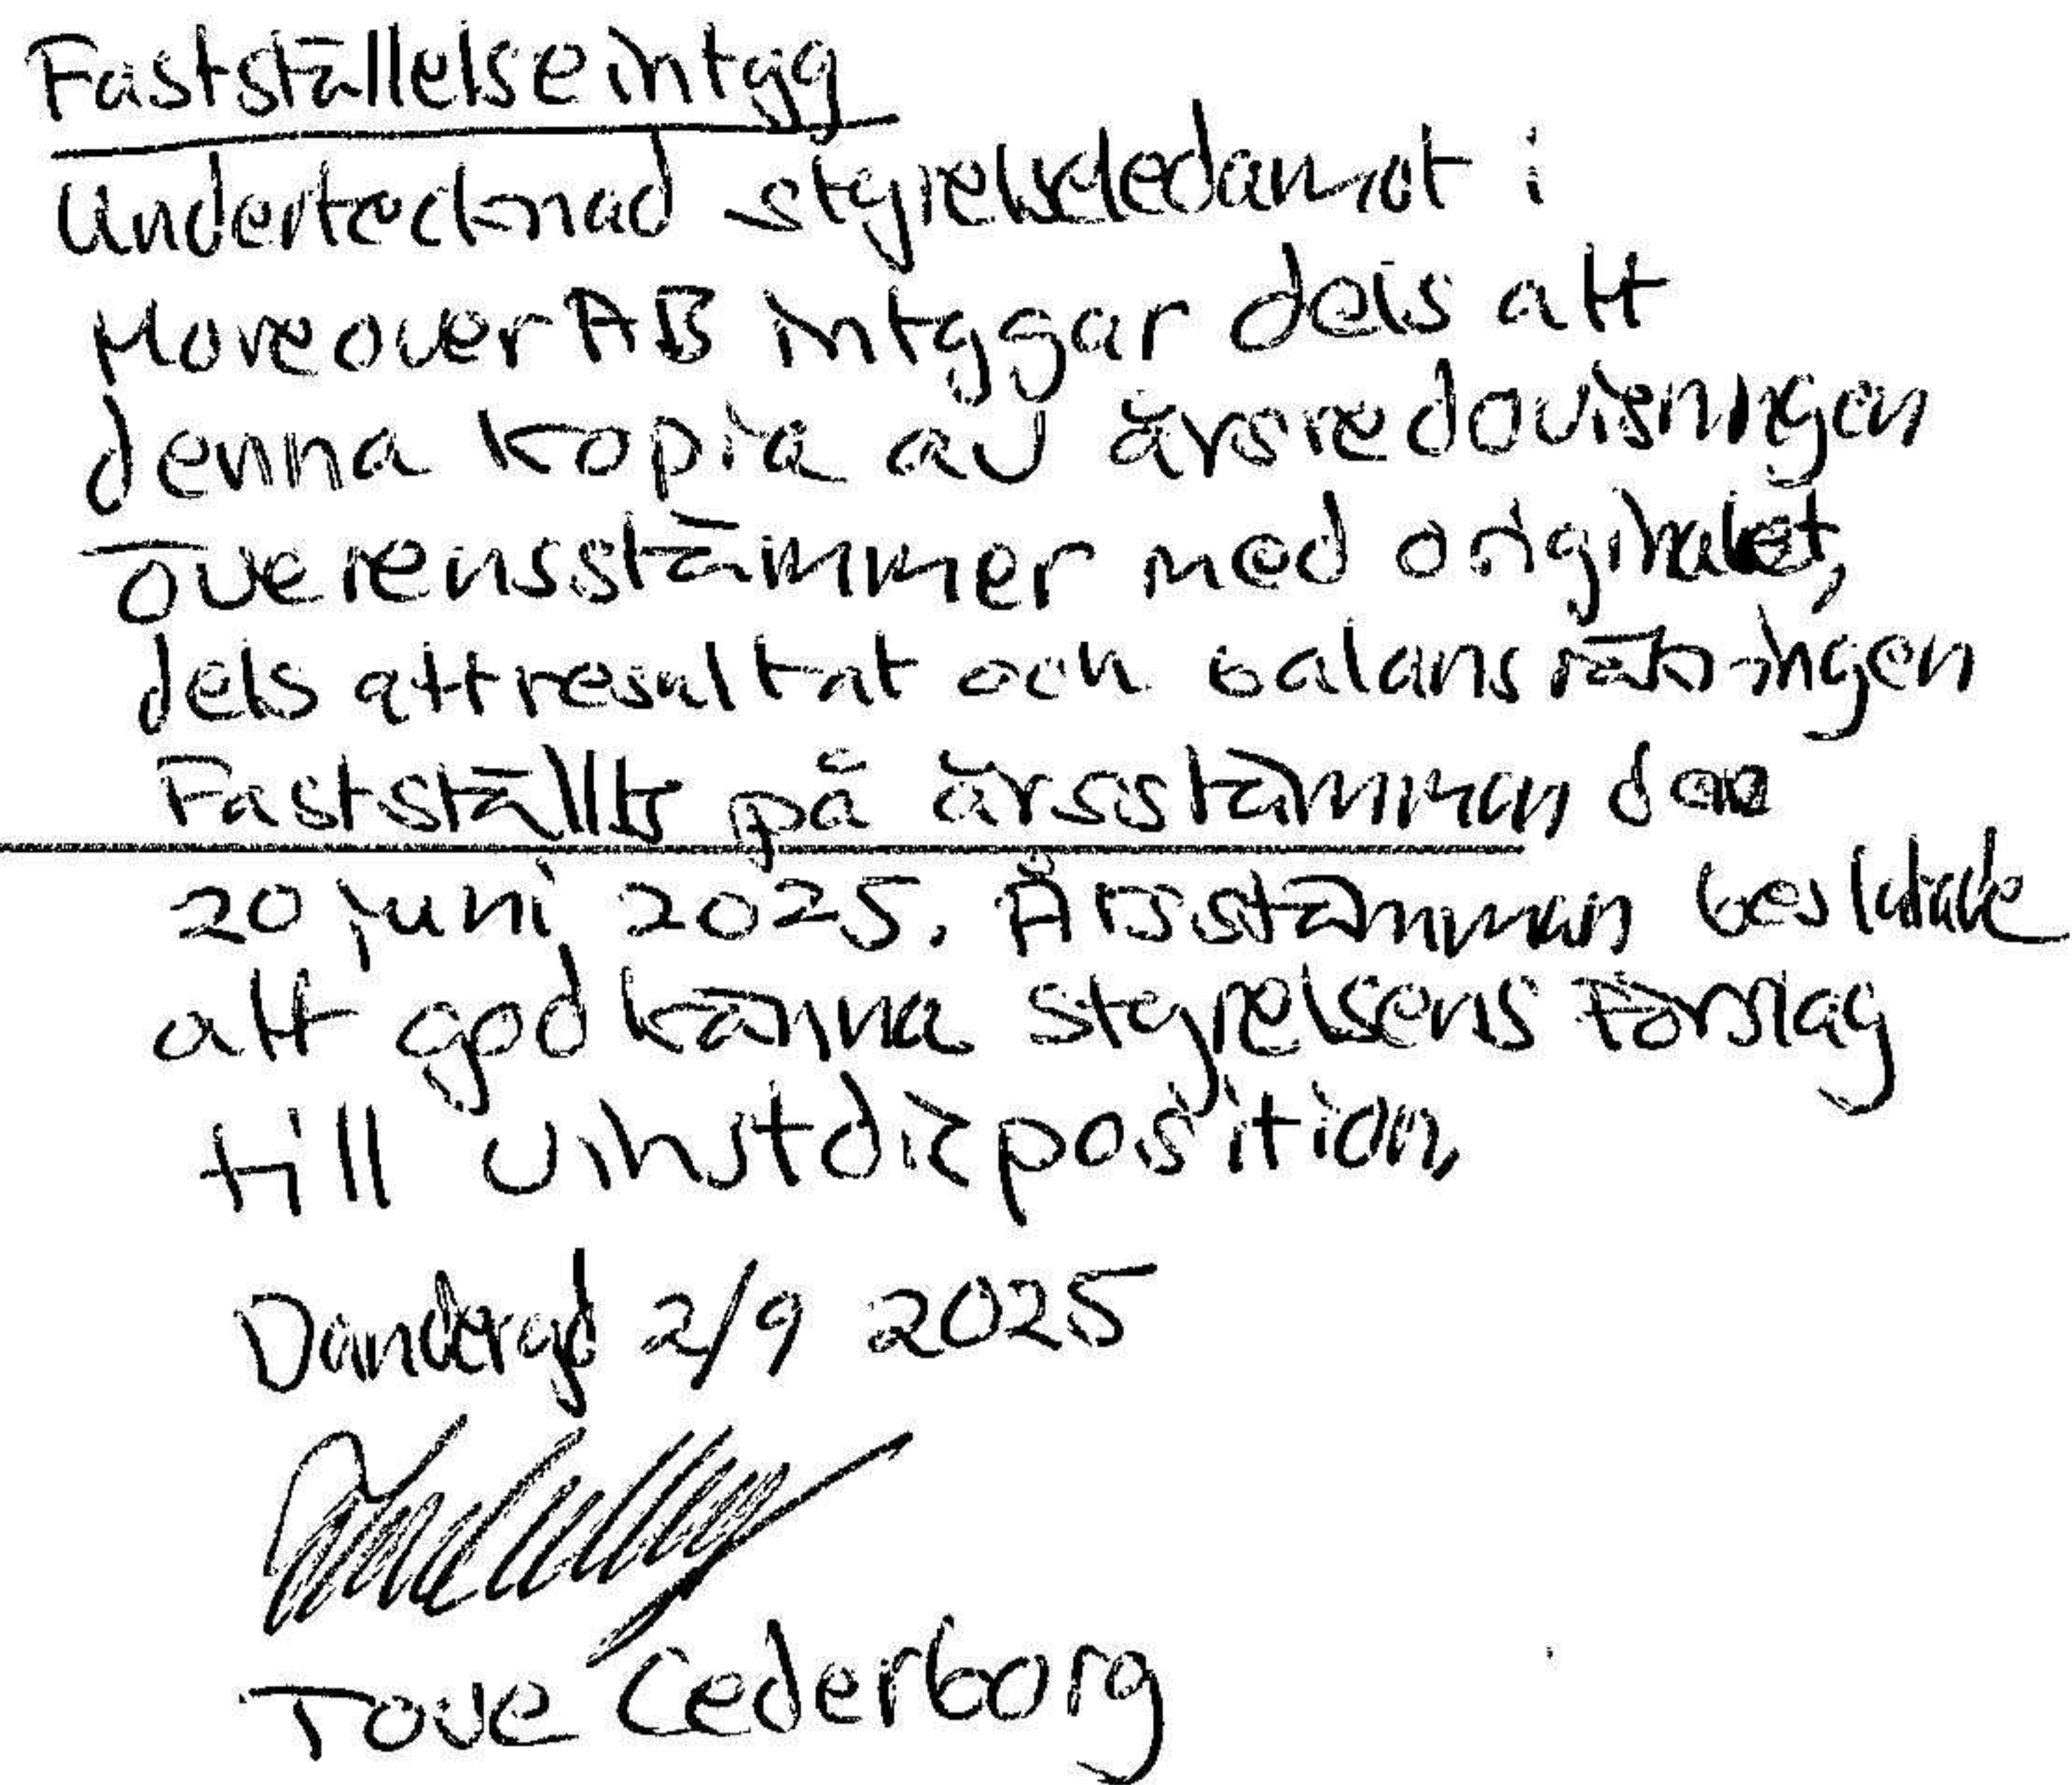 Fastställelseintyg
Undertecknad styrelseledamot i
Moreover AB intygar dels att
denna kopia av årsredovisningen
överensstämmer med originalet,
dels att resultat och balansräkningen
Fastställts på årsstämman den
20 juni 2025. Årsstämman beslutade
att godkänna styrelsens förslag
till vinstdisposition.
Danderyd 2/9 2025
Tove Cederborg